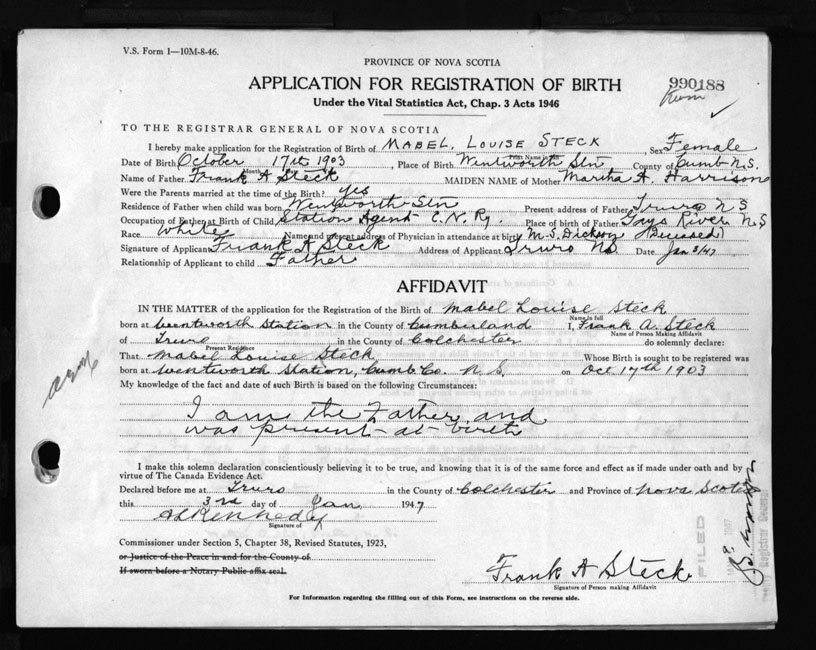 V.S. Form 1—10M-8-46.
PROVINCE OF NOVA SCOTIA
APPLICATION FOR REGISTRATION OF BIRTH
990188
Under the Vital Statistics Act, Chap. 3 Acts 1946
TO THE REGISTRAR GENERAL OF NOVA SCOTIA
I hereby make application for the Registration of Birth of MABEL, LOUISE STECK, Sex Female
Print Name in full
Date of Birth October 17th 1903, Place of Birth Wentworth Stn County of Cumb N.S.
Month
Name of Father Frank A Steck MAIDEN NAME of Mother Martha A. Harrison
Were the Parents married at the time of the Birth? yes
Residence of Father when child was born Wentworth Stn Present address of Father Truro N S
Occupation of Father at Birth of Child Station Agent C.N.Ry. Place of Birth of Father Gays River N.S
Race White Name and present address of Physician in attendance at birth M. S. Dickson (Deceased)
Signature of Applicant Frank A Steck Address of Applicant Truro NS. Date Jan 3/47
Relationship of Applicant to child Father
AFFIDAVIT
IN THE MATTER of the application for the Registration of the Birth of Mabel Louise Steck
Name in full
born at Wentworth Station in the County of Cumberland I, Frank A. Steck
Name of Person Making Affidavit
of Truro in the County of Colchester do solemnly declare:
Present Residence
That Mabel Louise Steck Whose Birth is sought to be registered was
born at Wentworth Station, Cumb. Co. N. S. on Oct 17th 1903
My knowledge of the fact and date of such Birth is based on the following Circumstances:
I am the Father and
was present at birth
I make this solemn declaration conscientiously believing it to be true, and knowing that it is of the same force and effect as if made under oath and by
virtue of The Canada Evidence Act.
Declared before me at Truro in the County of Colchester and Province of Nova Scotia
this 3rd day of Jan 1947
A L Kennedy
Signature of
Commissioner under Section 5, Chapter 38, Revised Statutes, 1923,
or Justice of the Peace in and for the County of
If sworn before a Notary Public affix seal.
Frank A Steck
Signature of Person making Affidavit
For Information regarding the filling out of this Form, see instructions on the reverse side.
FILED
Registrar General